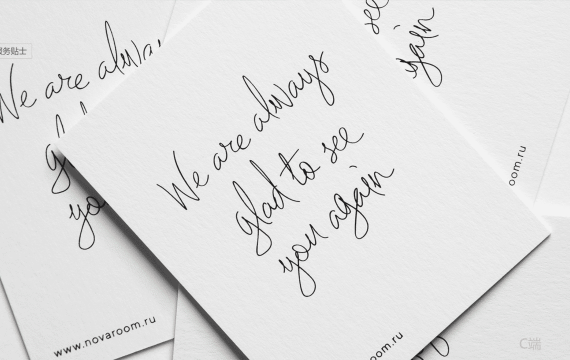 服务贴士
We are always
glad to see
you again
We are always
gl
yo
www.novaroom.ru
see
again
oom.ru
oom.ru
C端